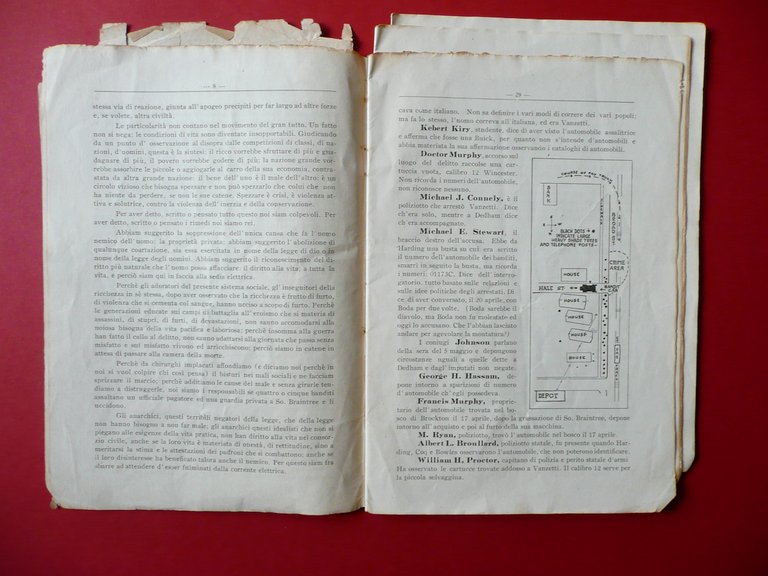 — 8 —
stessa via di reazione, giunta all'apogeo precipiti per far largo ad altre forze
e, se volete, altra civiltà.
Le particolarità non contano nel movimento del gran tutto. Un fatto
non si nega: le condizioni di vita sono diventate insopportabili. Giudicando
da un punto d' osservazione al disopra dalle competizioni di classi, di na-
zioni, d'uomini, questa è la sintesi: il ricco vorrebbe sfruttare di più e gua-
dagnare di più, il povero vorrebbe godere di più; la nazione grande vor-
rebbe assorbire le piccole o aggiogarle al carro della sua economia, contra-
stata da altra grande nazione: il bene dell'uno è il male dell'altro: è un
circolo vizioso che bisogna spezzare e non può spezzarlo che colui che non
ha niente da perdere, se non le sue catene. Spezzare è crisi, è violenza at-
tiva e solutrice, contro la violenza dell'inerzia e della conservazione.
Per aver detto, scritto o pensato tutto questo noi siam colpevoli. Per
aver detto, scritto o pensato i rimedi noi siamo rei.
Abbiam suggerito la suppressione dell'unica causa che fa l'uomo
nemico dell'uomo: la proprietà privata; abbiam suggerito l'abolizione di
qualunque coartazione, sia essa esercitata in nome della legge di dio o in
nome della legge degli uomini. Abbiam suggerito il riconoscimento del di-
ritto più naturale che l'uomo possa affacciare: il diritto alla vita, a tutta la
vita, e perciò siam qui in faccia alla sedia elettrica.
Perchè gli adoratori del presente sistema sociale, gl'insegnitori della
ricchezza in sè stessa, dopo aver osservato che la ricchezza è frutto di furto,
di violenza che si cementa col sangue, hanno ucciso a scopo di furto. Perchè
le generazioni educate sui campi di battaglia all'eroismo che si materia di
assassini, di stupri, di furti, di devastazioni, non sanno accomodarsi alla
noiosa bisogna della vita pacifica e laboriosa; perchè insomma alla guerra
han fatto il callo al delitto, non sanno adattarsi alla giornata che passa senza
misfatto e sui misfatto vivono ed arricchiscono; perciò siamo in catene in
attesa di passare alla camera della morte.
Perchè da chirurghi implacati affondiamo (e diciamo noi perchè in
noi si vuol colpire chi così pensa) il bisturi nei mali sociali e ne facciam
sprizzare il marcio; perchè additiamo le cause del male e senza girarle ten-
diamo a distruggerle, noi siamo i responsabili se quattro o cinque banditi
assaltano un ufficiale pagatore ed una guardia privata a So. Braintree e li
uccidono.
Gli anarchici, questi terribili negatori della legge, che della legge
non hanno bisogno a non far male; gli anarchici questi idealisti che non si
piegano alle esigenze della vita pratica, non han diritto alla vita nel consor-
zio civile, anche se la loro vita è materiata di onestà, di rettitudine, sino a
meritarsi la stima e le attestazioni dei padroni che si combattono; anche se
il loro disinteresse ha beneficato talora anche il nemico. Per questo siam fra
sbarre ad attendere d'esser fulminati dalla corrente elettrica.
— 29 —
cava come italiano. Non sa definire i vari modi di correre dei vari popoli;
ma fa lo stesso, l'uomo correva all'italiana, ed era Vanzetti.
Kebert Kiry, studente, dice di aver visto l'automobile assalitrice
e afferma che fosse una Buick, per quanto non s'intende d'automobili e
abbia materiata la sua affermazione osservando i cataloghi di automobili.
Doctor Murphy, accorso sul
luogo del delitto raccolse una car-
tuccia vuota, calibro 12 Wincester.
Non ricorda i numeri dell'automobile,
non riconosce nessuno.
Michael J. Connely, è il
poliziotto che arrestò Vanzetti. Dice
ch'era solo, mentre a Dedham dice
ch'era accompagnato.
Michael E. Stewart, il
braccio destro dell'accusa. Ebbe da
Harding una busta su cui era scritto
il numero dell'automobile dei banditi,
smarrì in seguito la busta, ma ricorda
i numeri: 0173C. Dice dell'interro-
gatorio, tutto basato sulle relazioni e
sulle idee politiche degli arrestati. Di-
ce di aver conversato, il 20 aprile, con
Boda per due volte. (Boda sarebbe il
diavolo, ma Boda non fu molestato ed
oggi lo accusano. Che l'abbian lasciato
andare per agevolare la montatura?)
I coniugi Johnson parlano
della sera del 5 maggio e depongono
circostanze uguali a quelle dette a
Dedham e dagl'imputati non negate.
George H. Hassam, de-
pone intorno a sparizioni di numero
d'automobile ch'egli possedeva.
Francis Murphy, proprie-
tario dell'automobile trovata nel bo-
sco di Brockton il 17 aprile, dopo la grassazione di So. Braintree, depone
intorno all'acquisto e poi al furto della sua macchina.
M. Ryan, poliziotto, trovò l'automobile nel bosco il 17 aprile.
Albert L. Brouillard, poliziotto statale, fu presente quando Har-
ding, Cox e Bowles osservarono l'automobile, che non poterono identificare.
William H, Proctor, capitano di polizia e perito statale d'armi
Ha osservato le cartucce trovate addosso a Vanzetti. Il calibro 12 serve per
la piccola selvaggina.
COURSE OF THE TRUCK
BANK
BROAD ST
BLACK DOTS
INDICATE LARGE
HEAVY SHADE TREES
AND TELEPHONE POSTS
CRIME
AREA
HOUSE
HALE ST
BANDIT
CAR
HOUSE
HOUSE
HOUSE
HOUSE
DEPOT